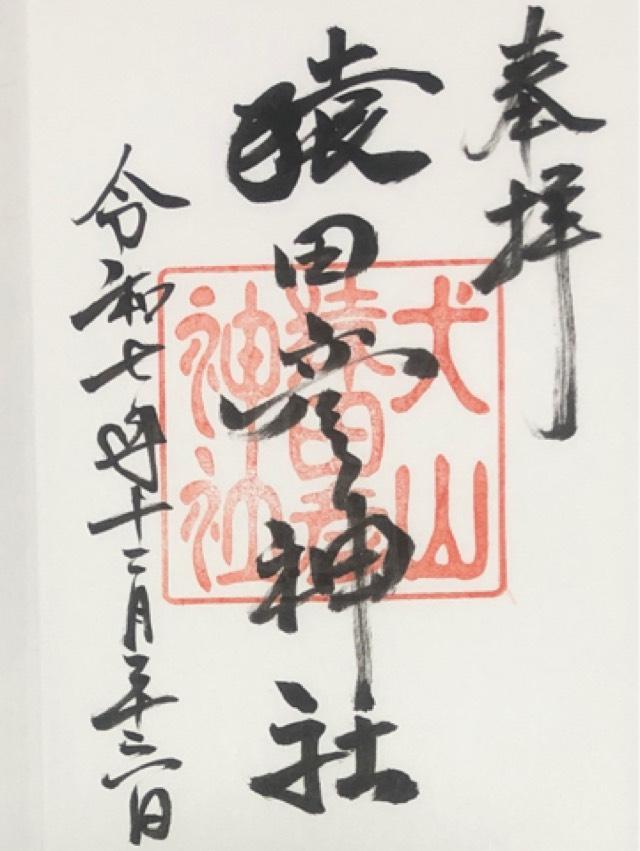 奉拝
猿田彦神社
令和七年十二月二十日
犬山
猿田彦
神社